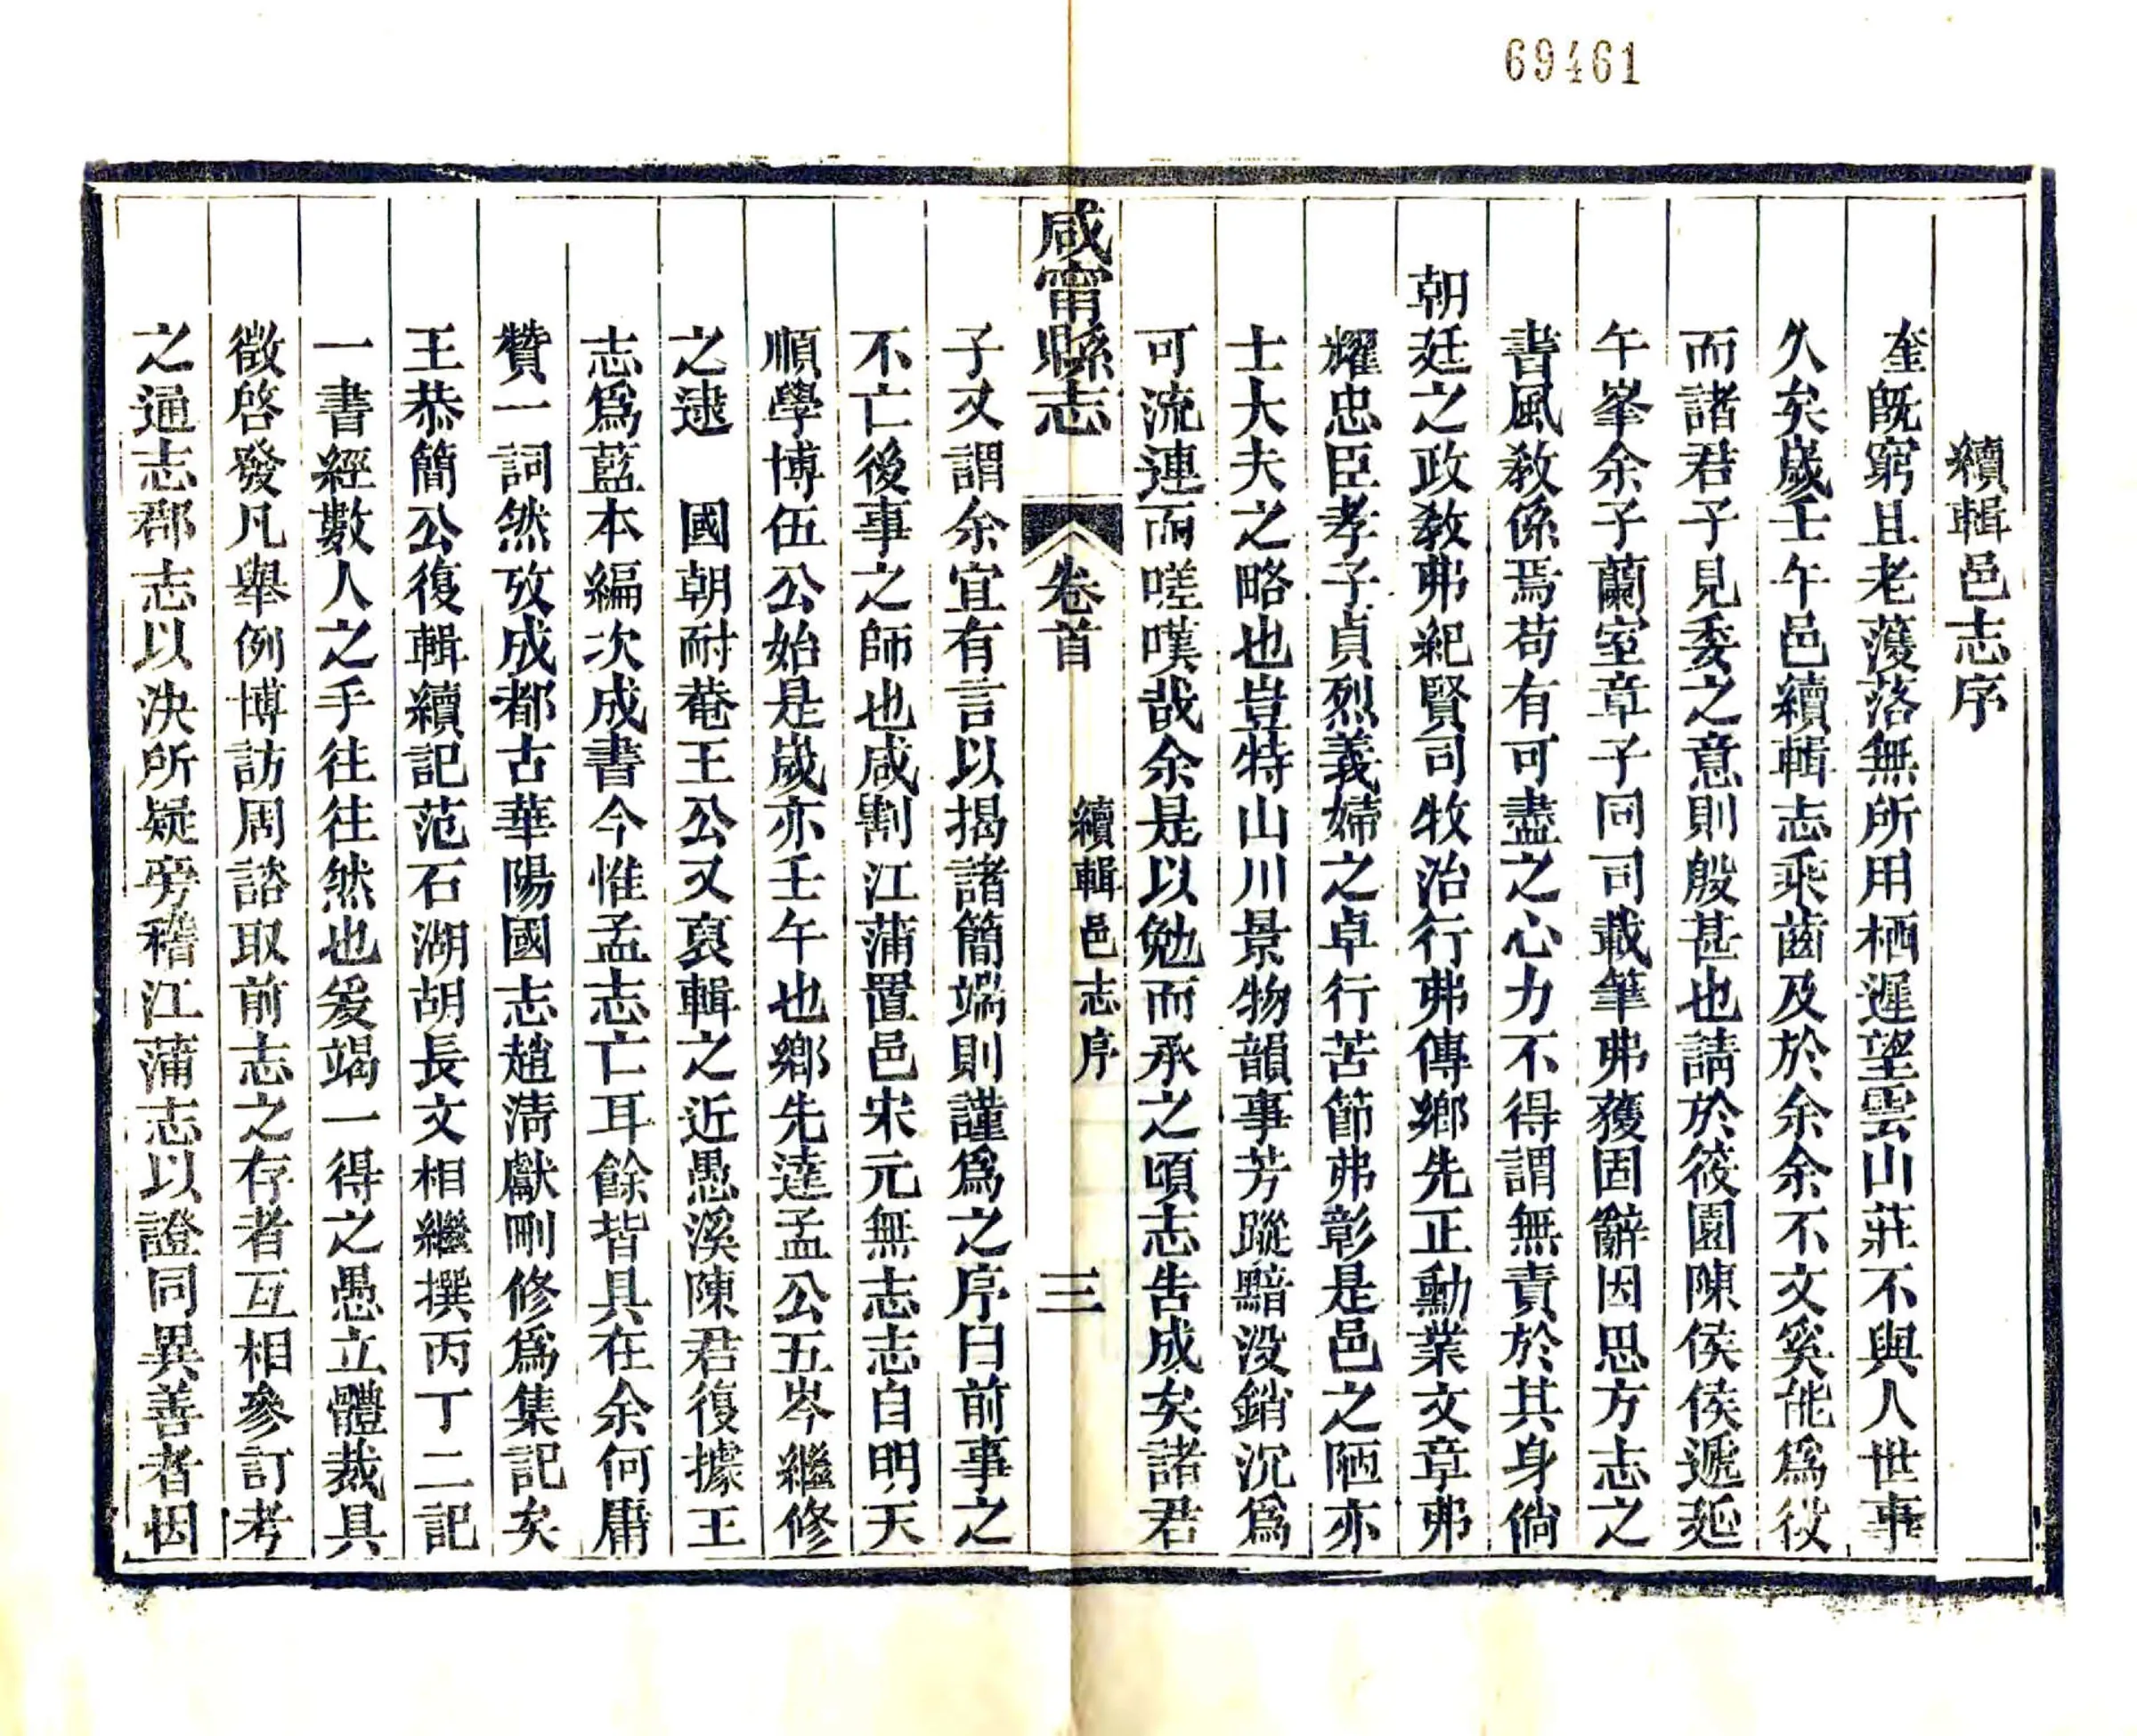 69461
續輯邑志序
奎旣窮且老濩落無所用栖遲望雲山莊不與人世事
久矣嵗壬午邑續輯志乘齒及於余余不文奚能爲役
而諸君子見委之意則殷甚也請於筱園陳侯侯遞延
午峯余子蘭室章子同司載筆弗獲固辭因思方志之
書風敎係焉苟有可盡之心力不得謂無責於其身倘
朝廷之政敎弗紀賢司牧治行弗傳鄉先正勳業文章弗
耀忠臣孝子貞烈義婦之卓行苦節弗彰是邑之陋亦
士大夫之略也豈特山川景物韻事芳蹤黯没銷沉爲
可流連而嗟嘆哉余是以勉而承之頃志告成矣諸君
咸甯縣志 卷首 續輯邑志序 三
子又謂余宜有言以揭諸簡端則謹爲之序曰前事之
不亡後事之師也咸割江蒲置邑宋元無志志自明天
順學博伍公始是嵗亦壬午也鄉先達孟公五岑繼修
之逮 國朝耐菴王公又裒輯之近愚溪陳君復據王
志爲藍本編次成書今惟孟志亡耳餘皆具在余何庸
贊一詞然攷成都古華陽國志趙淸獻刪修爲集記矣
王恭簡公復輯續記范石湖胡長文相繼撰丙丁二記
一書經數人之手往往然也爰竭一得之愚立體裁具
徵啓發凡舉例博訪周諮取前志之存者互相參訂考
之通志郡志以決所疑旁稽江蒲志以證同異善者因